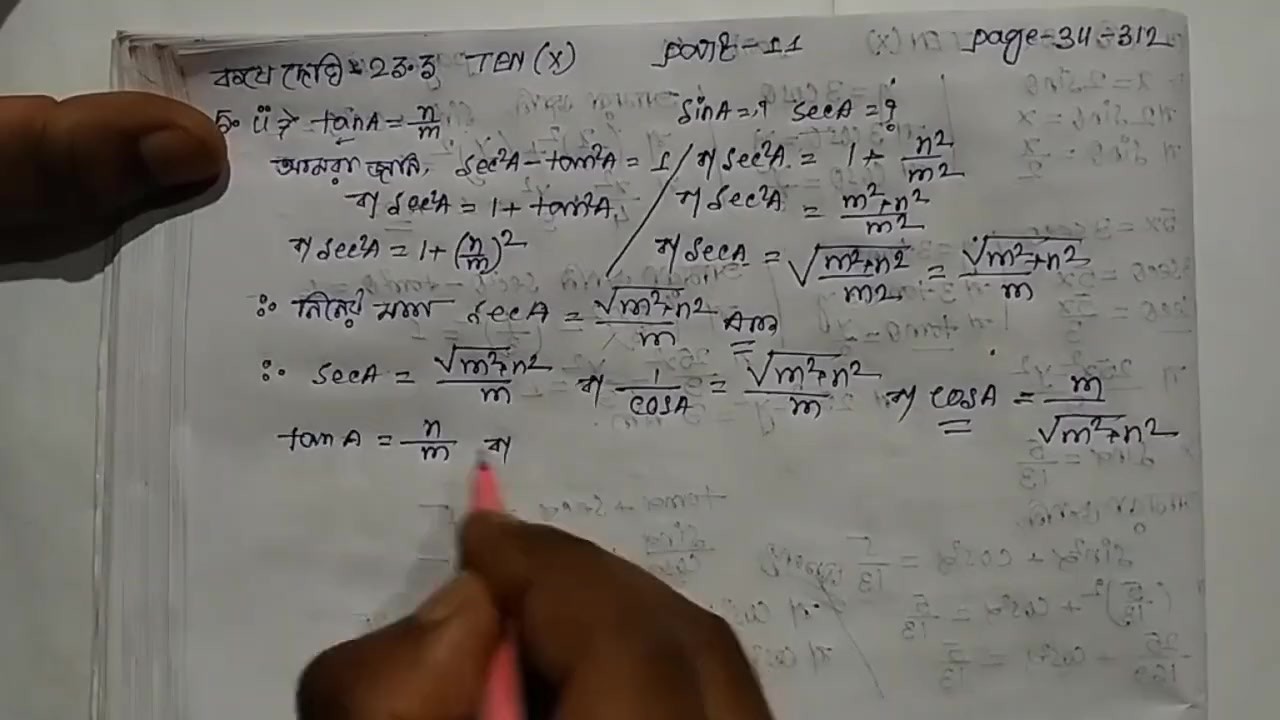 কষে দেখি 23.3 TEN (X) part-11 page-311-312
5. ii> tanA = n/m sinA = ? secA = ?
আমরা জানি, sec²A - tan²A = 1
বা sec²A = 1 + tan²A
বা sec²A = 1 + (n/m)²
বা sec²A = 1 + n²/m²
বা sec²A = m²+n²/m²
বা secA = √m²+n²/m² = √m²+n²/m
∴ নির্ণেয় মান secA = √m²+n²/m Ans
∴ secA = √m²+n²/m বা 1/cosA = √m²+n²/m বা cosA = m/√m²+n²
tanA = n/m বা